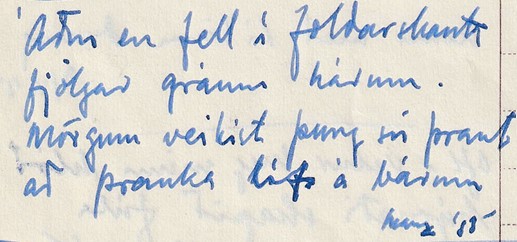 Aðm en fell á foldarskaut
fjölgar gráum hárum.
Mörgum veikist þung sú þraut
að þrauka lífs á bárum
marz '85